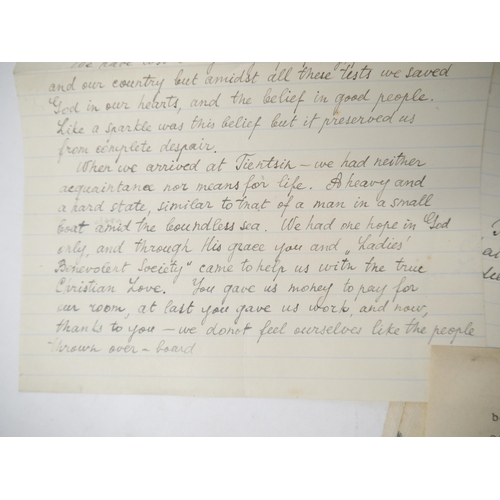 and our country but amidst all these tests we saved
God in our hearts, and the belief in good people.
Like a sparkle was this belief but it preserved us
from complete despair.
When we arrived at Tientsin – we had neither
acquaintance nor means for life. A heavy and
a hard state, similar to that of a man in a small
boat amid the boundless sea. We had one hope in God
only, and through His grace you and „Ladies'
Benevolent Society" came to help us with the true
Christian Love. You gave us money to pay for
our room, at last you gave us work, and now,
thanks to you – we do not feel ourselves like the people
thrown over-board